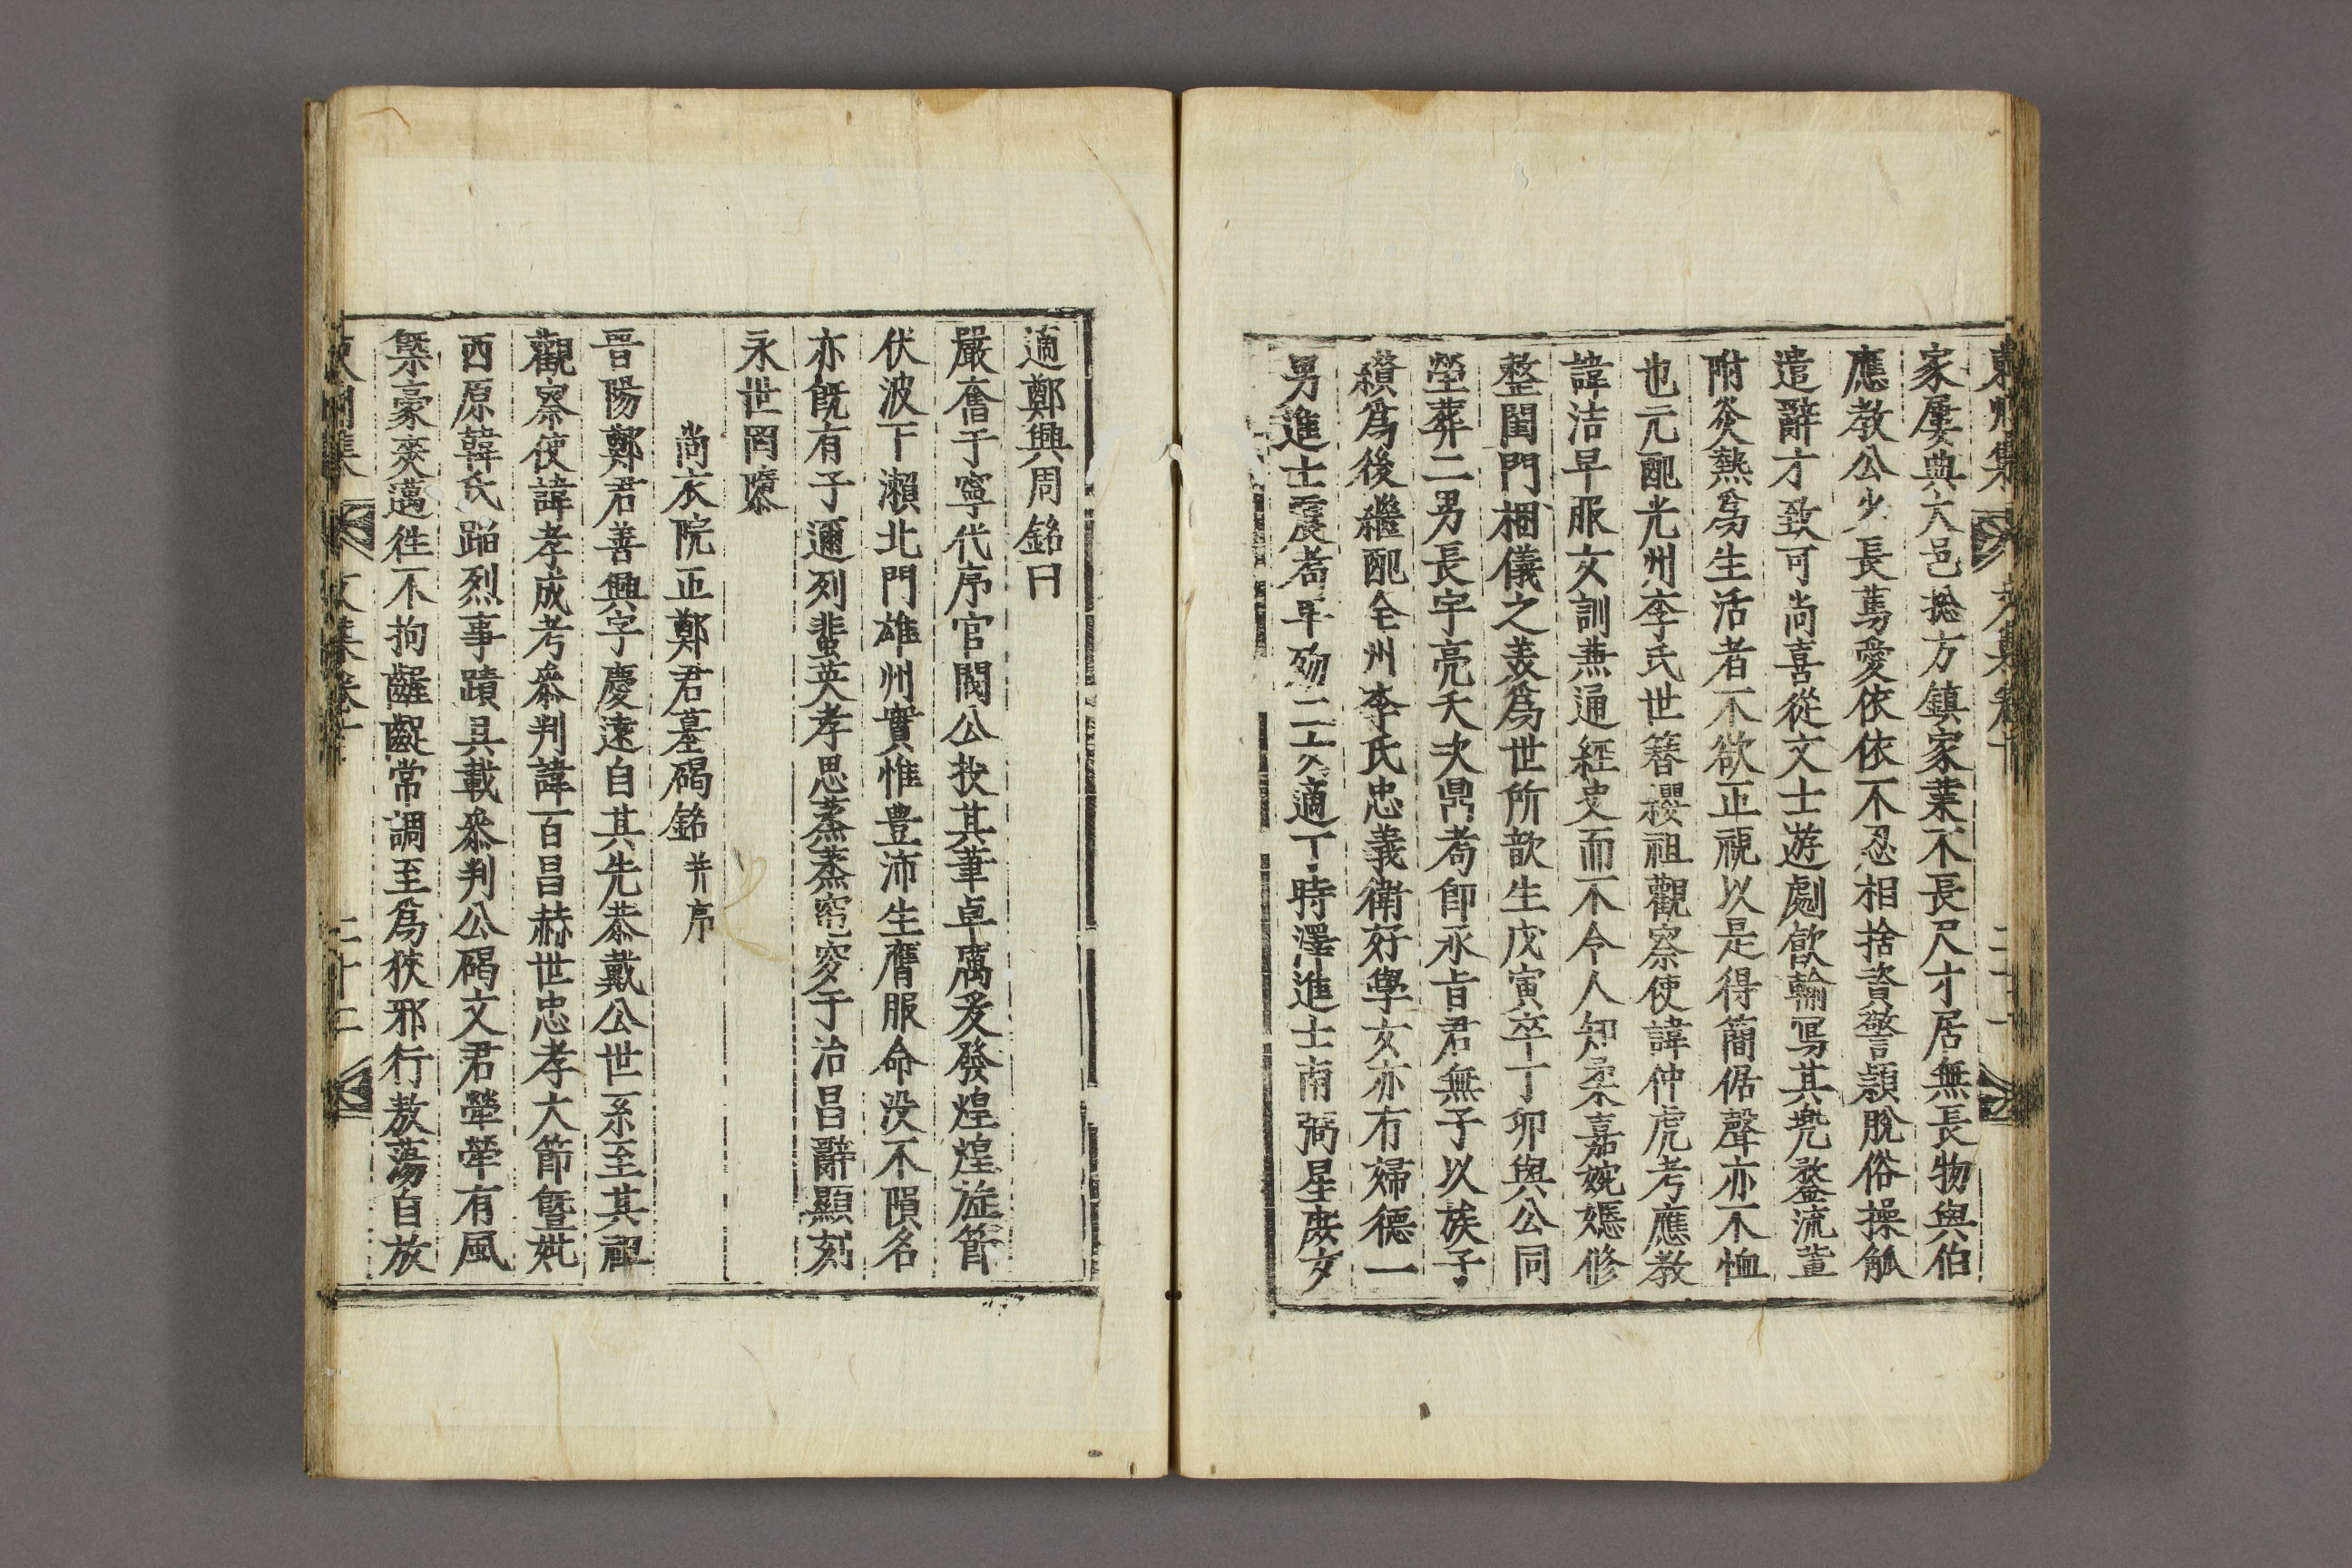 家屢典大邑摠方鎮家業不長尺寸居無長物與伯
應敎公少長篤愛依依不忍相捨資警穎脫俗操觚
遣辭才致可尚喜從文士遊劇飮輸寫其視發流輩
附炎熱爲生活者不欲正視以是得簡倨聲亦不恤
也元配光州李氏世簪纓祖觀察使諱仲虎考應教
諱洁早服女訓兼通經史而不令人知柔嘉婉嫕修
整閨門梱儀之美爲世所歆生戊寅卒丁卯與公同
塋葬二男長宇亮夭次鼎耇卽承旨君無子以族子
纘爲後繼配全州李氏忠義衛好學女亦有婦德一
男進士震耇早歿二女適丁時澤進士南弼星庶女
適鄭興周銘曰
嚴奮于寧代序官閥公扷其華卓厲爰發煌煌旌節
伏波下瀨北門雄州實惟豊沛生膺服命没不隕名
亦旣有子邇列蜚英孝思蒸蒸窀穸于治昌辭顯刻
永世罔隳
尚衣院正鄭君墓碣銘 幷序
晉陽鄭君善興字慶遠自其先恭戴公世系至其祖
觀察使諱孝成考叅判諱百昌赫世忠孝大節曁妣
西原韓氏蹈烈事蹟具載叅判公碣文君犖犖有風
槩豪爽邁往不拘齷齪常調至爲狹邪行敖蕩自放
東州集 文集卷十 二十二